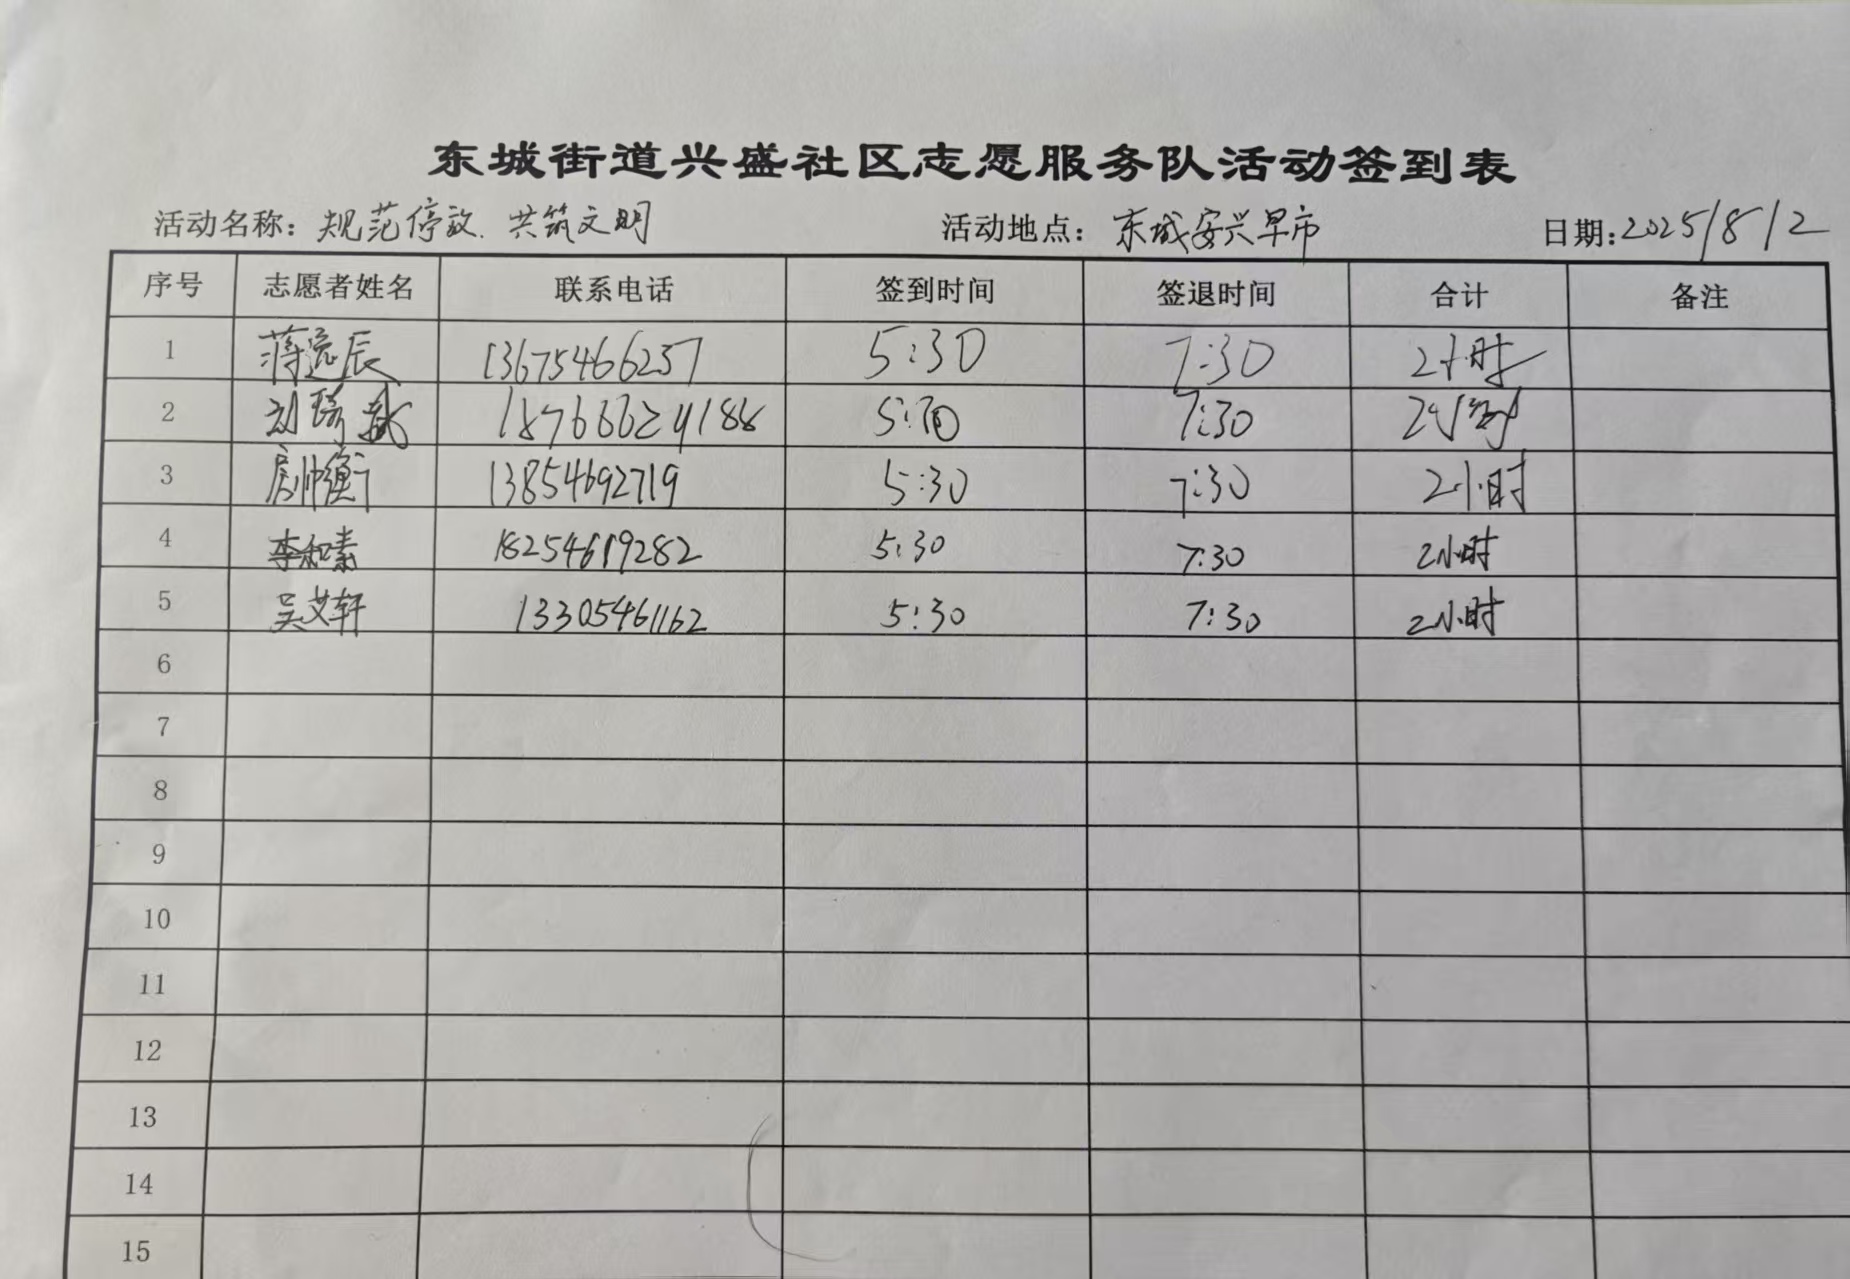 东城街道兴盛社区志愿服务队活动签到表
活动名称：规范停放、共筑文明 活动地点：东城安兴早市 日期：2025/8/2
序号 志愿者姓名 联系电话 签到时间 签退时间 合计 备注
1 蒋逸辰 13675466257 5:30 7:30 2小时
2 刘琦 5:30 7:30 2小时
3 13854692719 5:30 7:30 2小时
4 李和素 18254619282 5:30 7:30 2小时
5 吴艾轩 13305461162 5:30 7:30 2小时
6
7
8
9
10
11
12
13
14
15